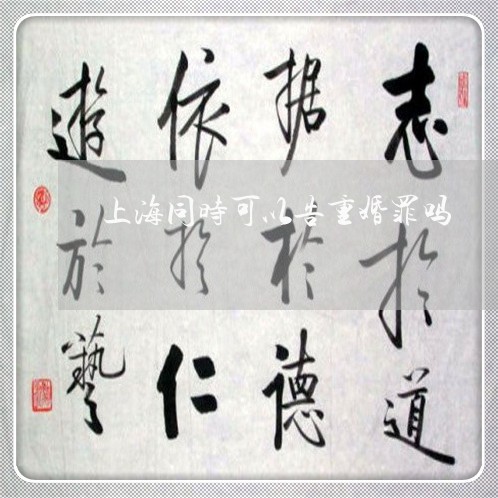 志於道
据於德
依於仁
遊於藝
上海同時可以告重婚罪吗